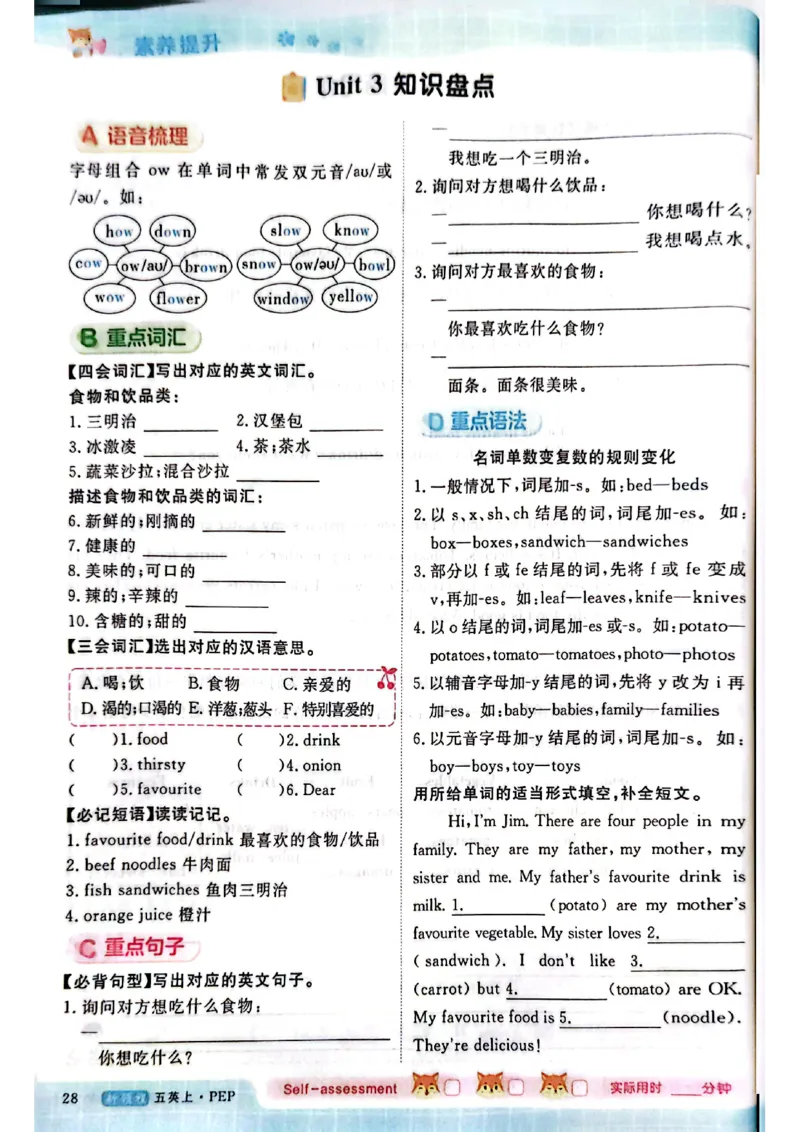 素养提升
Unit 3 知识盘点
A 语音梳理
字母组合 ow 在单词中常发双元音/aʊ/或
/əʊ/。如：
how down
cow ow/aʊ/ brown
wow flower
slow know
snow ow/əʊ/ bowl
window yellow
B 重点词汇
【四会词汇】写出对应的英文词汇。
食物和饮品类：
1. 三明治 ________ 2. 汉堡包 ________
3. 冰激凌 ________ 4. 茶；茶水 ________
5. 蔬菜沙拉；混合沙拉 ________
描述食物和饮品类的词汇：
6. 新鲜的；刚摘的 ________
7. 健康的 ________
8. 美味的；可口的 ________
9. 辣的；辛辣的 ________
10. 含糖的；甜的 ________
【三会词汇】选出对应的汉语意思。
A. 喝；饮 B. 食物 C. 亲爱的
D. 渴的；口渴的 E. 洋葱；葱头 F. 特别喜爱的
( )1. food ( )2. drink
( )3. thirsty ( )4. onion
( )5. favourite ( )6. Dear
【必记短语】读读记记。
1. favourite food/drink 最喜欢的食物/饮品
2. beef noodles 牛肉面
3. fish sandwiches 鱼肉三明治
4. orange juice 橙汁
C 重点句子
【必背句型】写出对应的英文句子。
1. 询问对方想吃什么食物：
—________
你想吃什么？
—________
我想吃一个三明治。
2. 询问对方想喝什么饮品：
—________ 你想喝什么？
—________ 我想喝点水。
3. 询问对方最喜欢的食物：
—________
你最喜欢吃什么食物？
—________
面条。面条很美味。
D 重点语法
名词单数变复数的规则变化
1. 一般情况下，词尾加-s。如：bed—beds
2. 以 s、x、sh、ch 结尾的词，词尾加-es。如：
box—boxes,sandwich—sandwiches
3. 部分以 f 或 fe 结尾的词，先将 f 或 fe 变成
v，再加-es。如：leaf—leaves,knife—knives
4. 以 o 结尾的词，词尾加-es 或-s。如：potato—
potatoes,tomato—tomatoes,photo—photos
5. 以辅音字母加-y 结尾的词，先将 y 改为 i 再
加-es。如：baby—babies,family—families
6. 以元音字母加-y 结尾的词，词尾加-s。如：
boy—boys,toy—toys
用所给单词的适当形式填空，补全短文。
Hi,I'm Jim. There are four people in my
family. They are my father, my mother, my
sister and me. My father's favourite drink is
milk. 1. ________ (potato) are my mother's
favourite vegetable. My sister loves 2. ________
(sandwich). I don't like 3. ________
(carrot) but 4. ________ (tomato) are OK.
My favourite food is 5. ________ (noodle).
They're delicious!
28 五英上·PEP
Self-assessment 实际用时 ____分钟